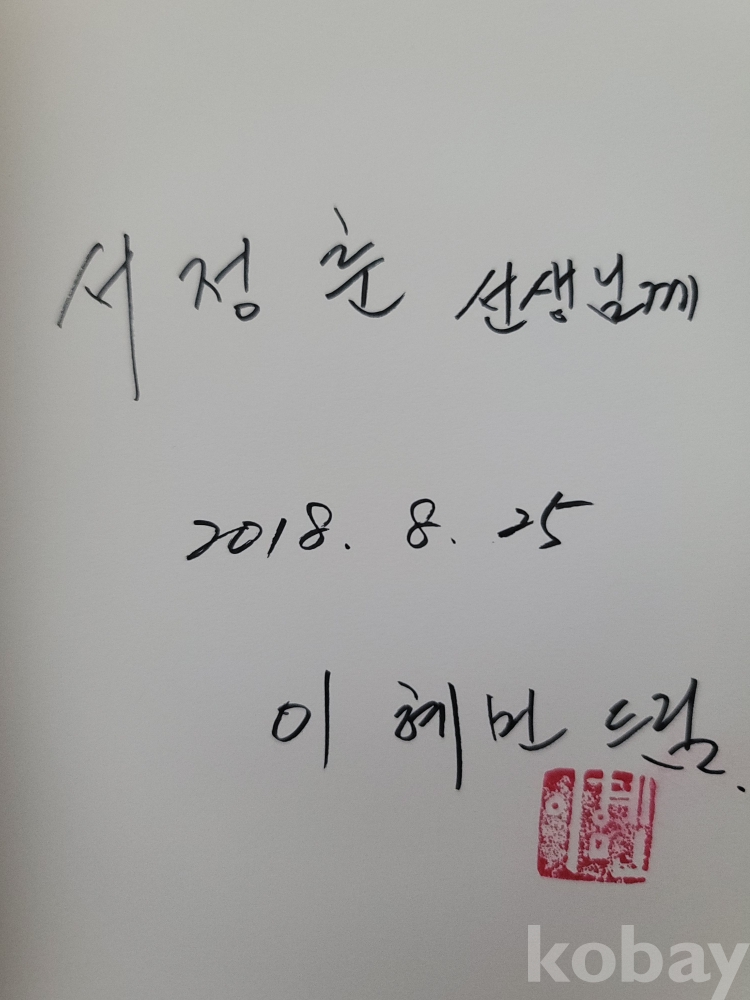 서정춘 선생님께
2018. 8. 25
이혜민 드림.
kobay